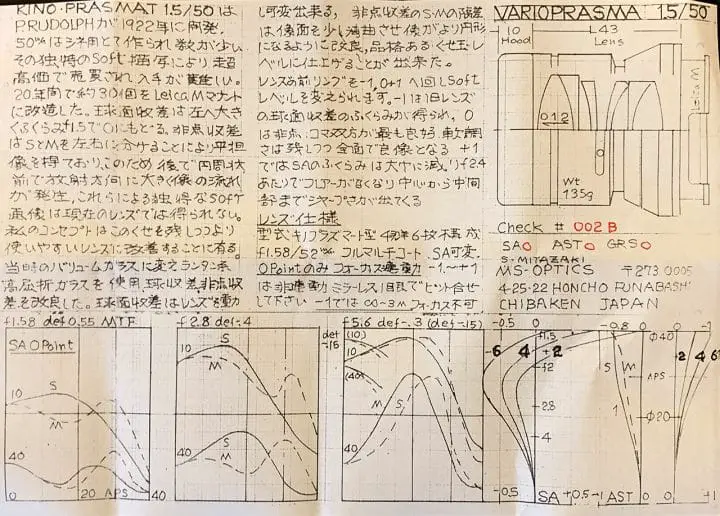 KINO-PRASMAT 1.5/50は
P.RUDOLPHが1922年に開発。
50%はシネ用として作られ数が少い
その独特のSoft描写により超
高価で売買され入手が難しい。
20年間で約30個をLeica Mマウント
に改造した。球面収差は左へ大き
くふくらみf1.5で0にもどる。非点収差
はSとMを左右に分けることにより平担
像を得ており、このため後で円周状
前で放射方向に大きく像の流れ
が発生、これらによる独得なSoft
画像は現在のレンズでは得られない。
私のコンセプトはこのくせを残しつつより
使いやすいレンズに改善することに有る。
当時のバリュームガラスに変えランタン系
高屈折ガラスを使用球収差非点収
差を改良した。球面収差はレンズを動
し可変出来る、非点収差のS-Mの隔差
は像面を少し湾曲させ像がより円形
になるように改良、品格あるくせ玉レ
ベルに仕上げることが出来た。
レンズの前リングを-1,0+1へ回しSoft
レベルを変えられます。-1は旧レンズ
の球面収差のふくらみが得られ、0
は非点、コマ双方が最も良好、軟調
さは残しつつ全面で良像となる +1
ではSAのふくらみは大巾に減り f2.4
あたりでフレアーがなくなり中心から中間
部までシャープさが出てくる
レンズ仕様
型式:キノプラズマート型 4群6枚再成
f1.58/52% フルマルチコート SA可変.
0Pointのみフォーカス連動 -1.〜+1
は非連動 ミラーレス1眼にてピント合せ
して下さい -1では∞-3mフォーカス不可
VARIOPRASMA 1.5/50
10
Hood
L43
Lens
0 1 2
Wt
135g
Leica M
Check # 002 B
SAO ASTO GRSO
S-MIYAZAKI
MS-OPTICS 〒273 0005
4-25-22 HONCHO FUNABASHI
CHIBAKEN JAPAN
f1.58 def 0.55 MTF
SA 0 Point
10
S
M
40
0 20 APS 40
f2.8 def-.4
10
S
M
40
f5.6 def-.3 (def-.15)
def
-.15
(10)
10
(40)
M
S
40
-0.5 0
f1.5
-6 4 +2
f2
2.8
4
-0.5 SA +0.5
-0.8 0
S M
1
-1 AST 0
0 -1
Φ40
-2 4 6
APS
Φ20
0 +1